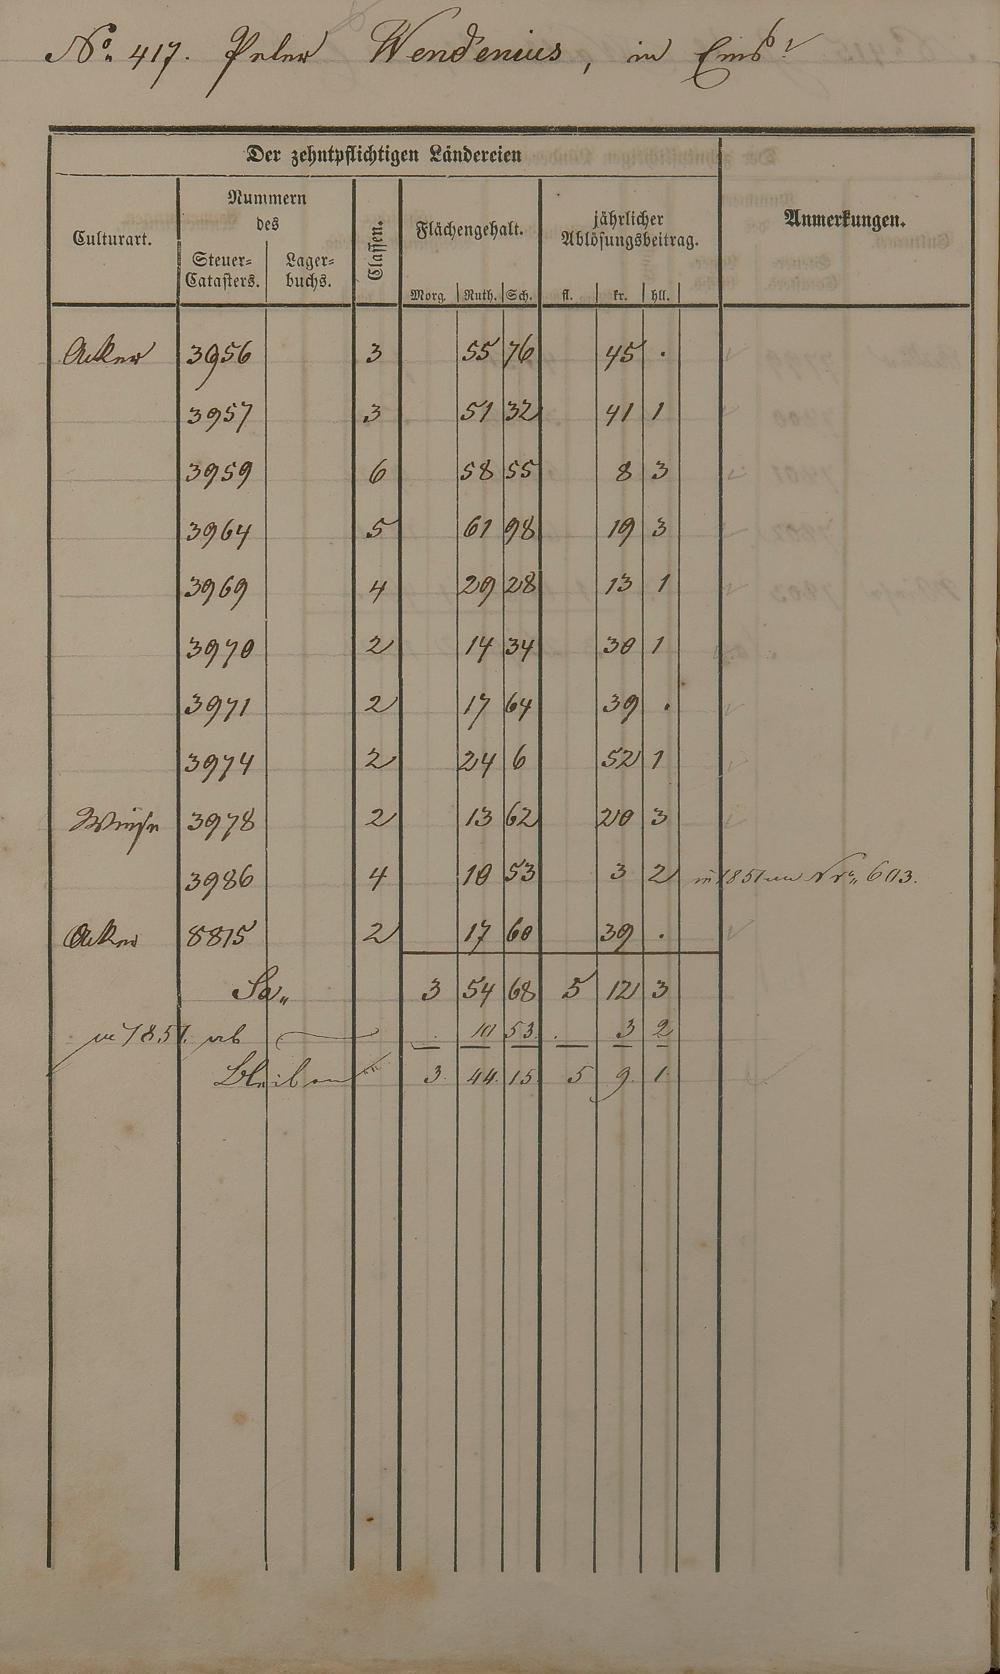 No. 417. Peter Wendenius, in Ems.
Der zehntpflichtigen Ländereien
Culturart.
Nummern
des
Steuer=
Catasters.
Lager=
buchs.
Classen.
Flächengehalt.
Morg. Ruth. Sch.
jährlicher
Ablösungsbeitrag.
fl. kr. hll.
Anmerkungen.
Acker 3956 3 55 76 45 .
3957 3 51 32 41 1
3959 6 58 55 8 3
3964 5 61 98 19 3
3969 4 29 28 13 1
3970 2 14 34 30 1
3971 2 17 64 39 .
3974 2 24 6 52 1
Wiese 3978 2 13 62 20 3
3986 4 10 53 3 2 in 1851 an Nro. 603.
Acker 8815 2 17 60 39 .
Sa. 3 54 68 5 12 3
in 1851. ab . 10 53. . 3 2
Bleiben 3. 44. 15. 5 9. 1